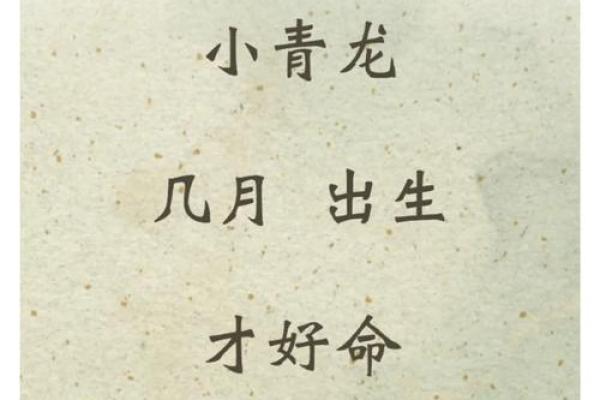 小青龙
几月 出生
才好命